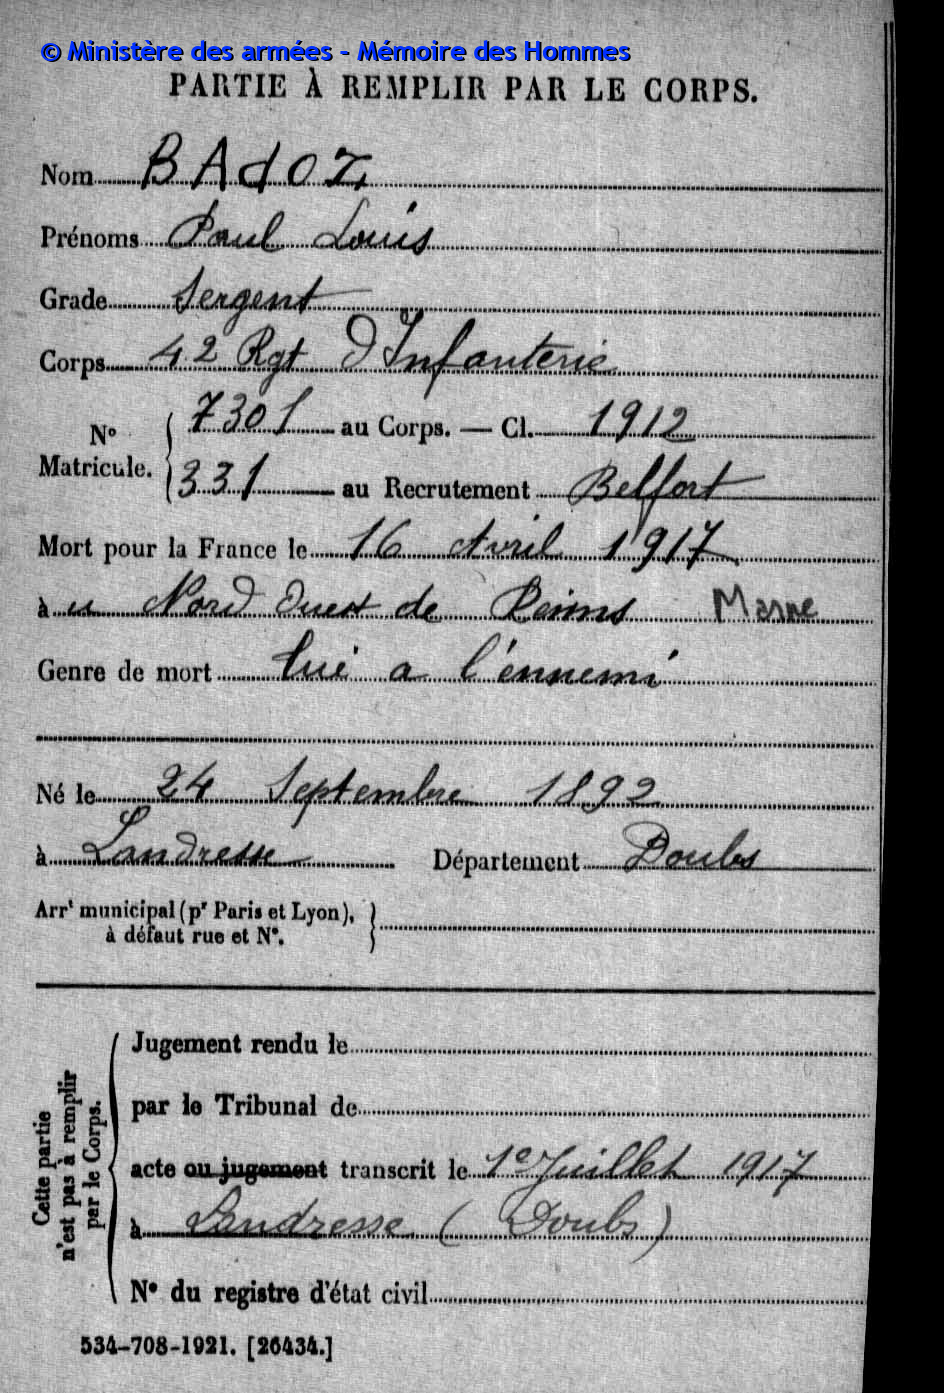 © Ministère des armées - Mémoire des Hommes
PARTIE À REMPLIR PAR LE CORPS.
Nom BAdOZ
Prénoms Paul Louis
Grade Sergent
Corps 42 Rgt d'Infanterie
N° Matricule. { 7301 au Corps. — Cl. 1912
331 au Recrutement Belfort
Mort pour la France le 16 Avril 1917
à u Nord Ouest de Reims Marne
Genre de mort tué a l'énnemi
Né le 24 Septembre 1892
à Landresse Département Doubs
Arrt municipal (pr Paris et Lyon),
à défaut rue et N°.
Cette partie n'est pas à remplir par le Corps.
Jugement rendu le
par le Tribunal de
acte ou jugement transcrit le 1e Juillet 1917
à Landresse (Doubs)
N° du registre d'état civil
534-708-1921. [26434.]